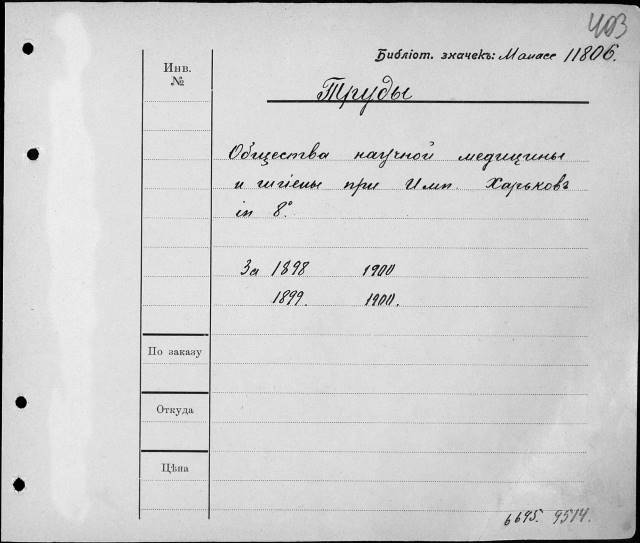 403
Библіот. значекъ: Манасс 11806.
Инв.
№
Труды
Общества научной медицины
и гигіены при Имп. Харьковъ
in 8°
За 1898 1900
1899. 1900.
По заказу
Откуда
Цѣна
6695. 9514.